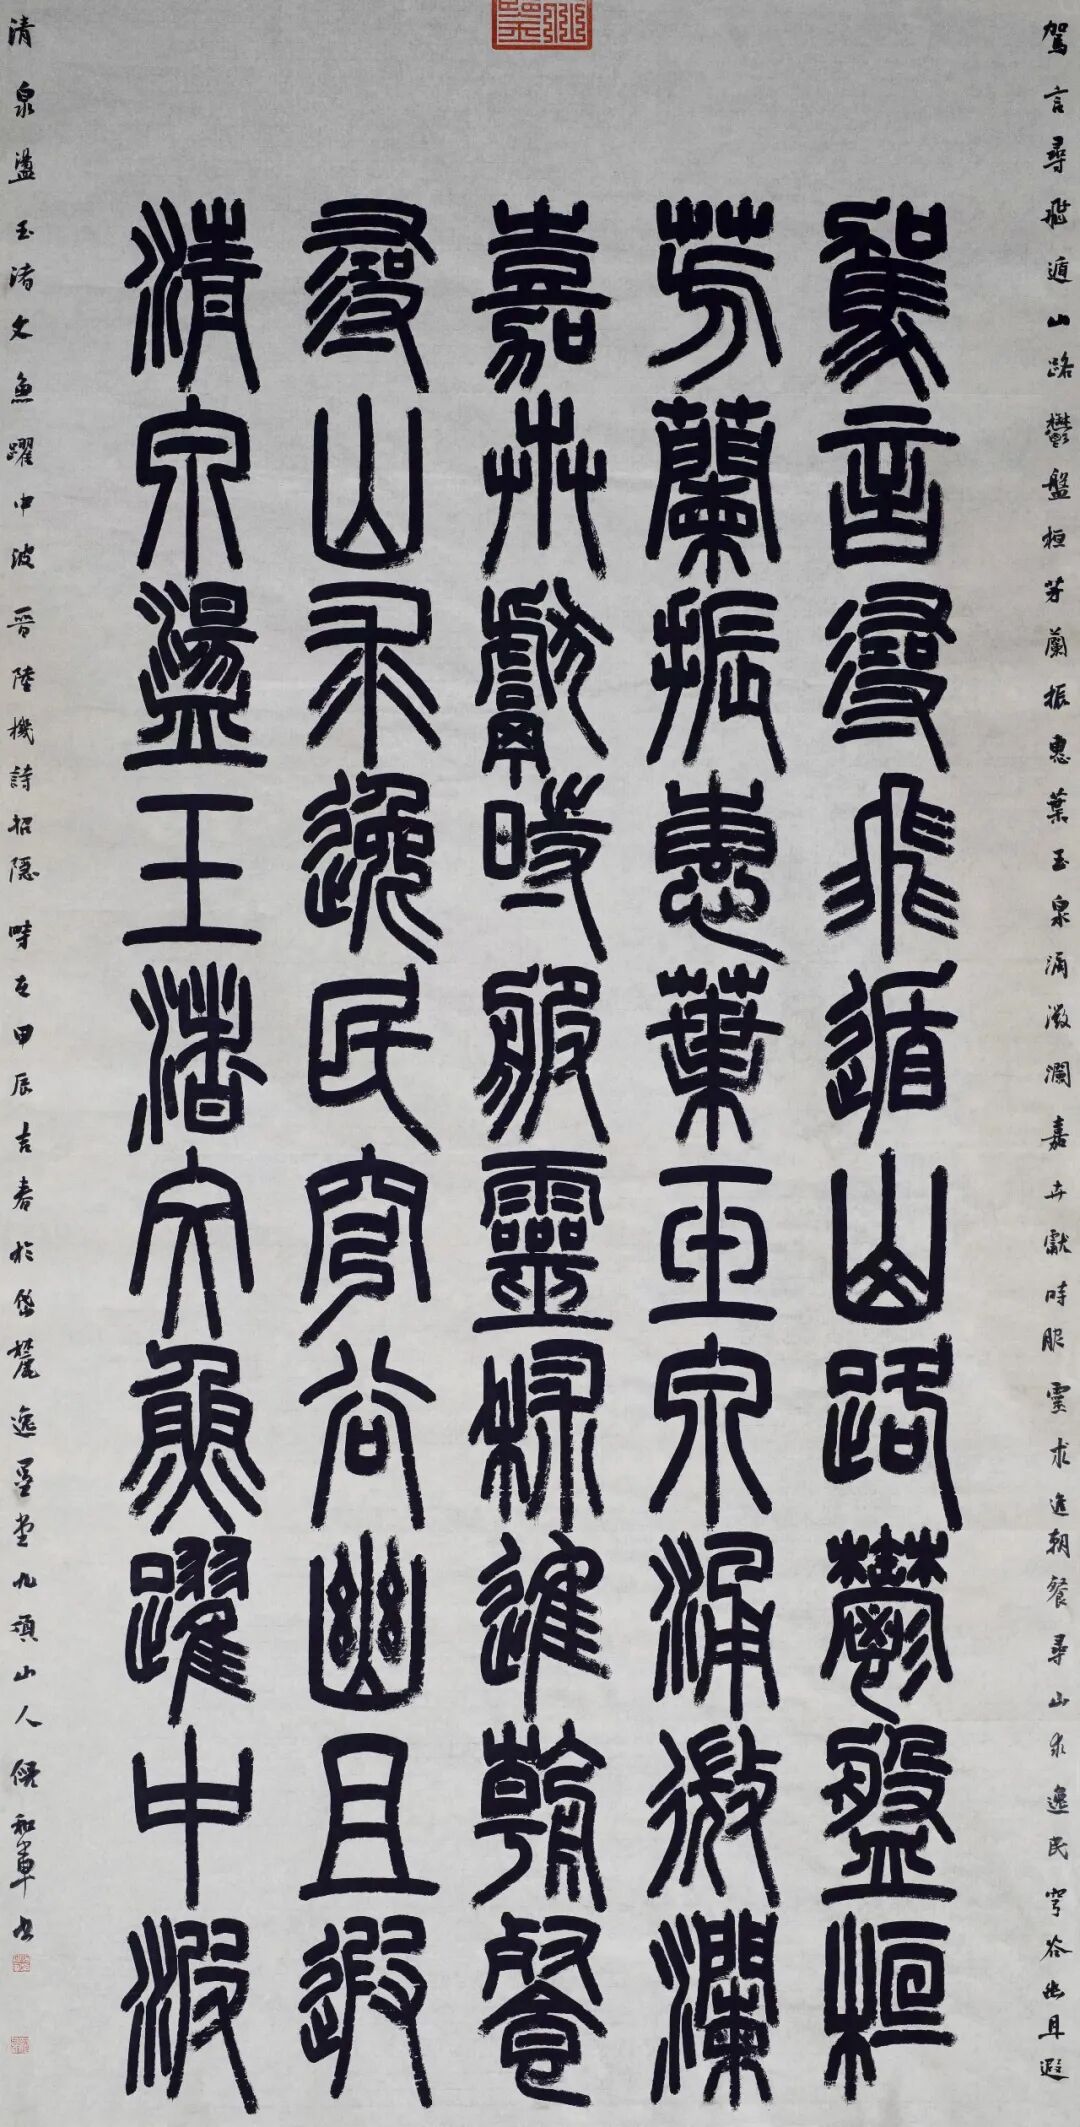 駕言尋飛遁山路鬱盤桓芳蘭振惠葉玉泉涌微瀾嘉卉獻時服靈朮進朝餐尋山求逸民穹谷幽且遐
駕言尋飛遁山路鬱盤桓
芳蘭振惠葉玉泉涌微瀾
嘉卉獻時服靈朮進朝餐
尋山求逸民穹谷幽且遐
清泉盪玉渚文魚躍中波
清泉盪玉渚文魚躍中波晉陸機詩招隱時在甲辰吉春於岱麓逸墨堂九頂山人倪和軍書